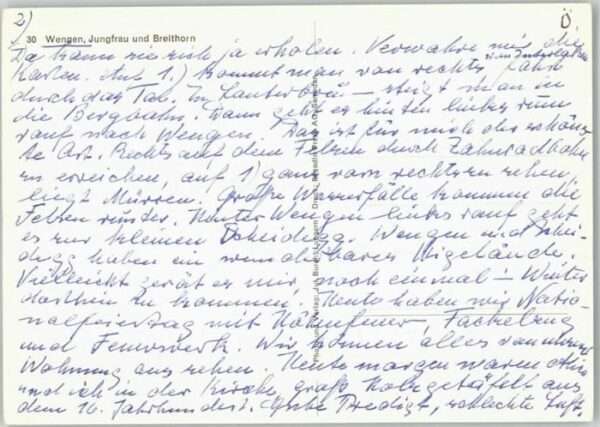 2)
Ö.
30 Wengen, Jungfrau und Breithorn
Da kann sie sich ja erholen. Verwahre mir die
Karten. Auf 1.) kommt man von rechts
durch das Tal. In steigt man in
die Bergbahn. Dann geht es hinten links rum
rauf nach Wengen. Das ist für mich der schöns-
te Ort. Rechts auf dem Felsen durch Zahnradbahn
zu erreichen, auf 1) ganz von rechts zu sehen,
liegt Mürren. Große Wasserfälle kommen die
Felsen runter. Hinter Wengen links rauf geht
es zur kleinen Scheidegg. Wengen und Schei-
degg haben ein wunderbares Skigelände.
Vielleicht gerät es mir noch einmal - Winter
dorthin zu kommen. Heute haben wir Natio-
nalfeiertag mit Höhenfeuer, Fackelzug
und Feuerwerk. Wir können alles von unserer
Wohnung aus sehen. Heute morgen waren
und ich in der Kirche, groß Holzgetäfelt aus
dem 16. Jahrhundert. Gute Predigt, schlechte Luft.